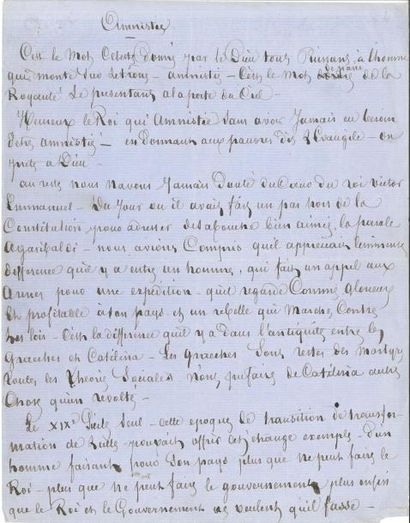 Amnistie
C'est le Mot Celeste donné par le Dieu tout Puissant à l'homme
qui monte sur le trone – amnistie – C'est le Mot de passe de la
Royauté se presentant a la porte du Ciel –
Heureux le Roi qui Amnistie sans avoir Jamais eu besoin
d'etre amnistié – en Donnant aux pauvres dit l'Evangile – on
prete a Dieu –
au reste nous n'avons Jamais Douté du Cœur du roi Victor
Emmanuel – Du Jour ou il avait fait un pas hors de la
Constitution pour adresser de sa bouche bien aimée, la parole
a Garibaldi – nous avions Compris qu'il appreciait l'immense
difference qu'il y a entre un homme, qui fait un appel aux
Armes pour une expedition – qu'il regarde Comme glorieuse
et profitable a son pays et un rebelle qui Marche Contre
les lois – C'est la difference qu'il y a dans l'antiquité entre les
Gracches et Catilina – Les Gracches sont restés des Martyrs
toutes les theories Sociales n'ont pu faire de Catilina autre
Chose qu'un revolté –
Le XIXe Siècle seul – cette epoque de transition de transfor-
mation de Siècle – pouvait offrir cet étrange exemple – d'un
homme faisant pour son pays plus que ne peut faire le
Roi – plus que ne peut faire le gouvernement, plus enfin
que le Roi et le Gouvernement ne veulent qu'il fasse –